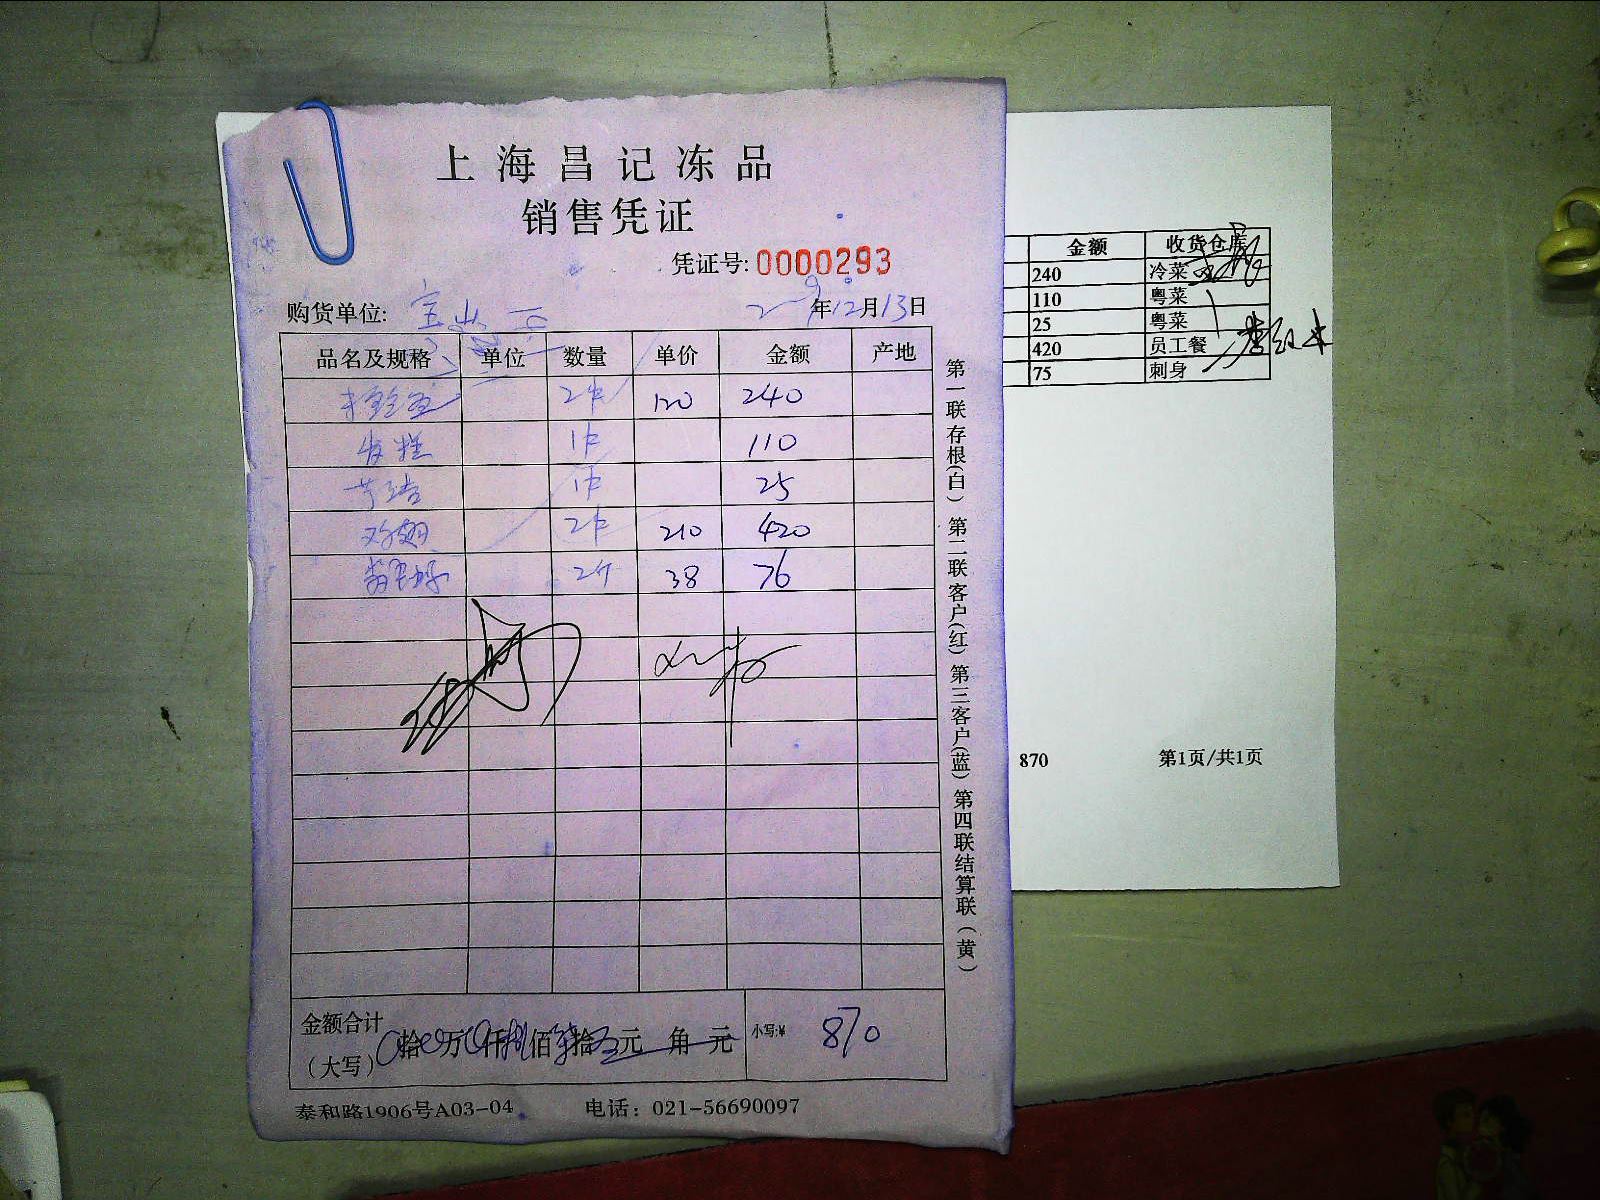 上海昌记冻品
销售凭证
凭证号: 0000293
购货单位: 宝 年12月13日
品名及规格 单位 数量 单价 金额 产地
2 120 240
发糕 1 110
1 25
鸡翅 2 210 420
2 38 76
金额合计
(大写) 拾 万 仟 捌佰 柒拾 元 角 元 小写:¥ 870
泰和路1906号A03-04 电话: 021-56690097
第一联存根(白) 第二联客户(红) 第三客户(蓝) 第四联结算联(黄)
金额 收货仓库
240 冷菜
110 粤菜
25 粤菜
420 员工餐
75 刺身
870 第1页/共1页